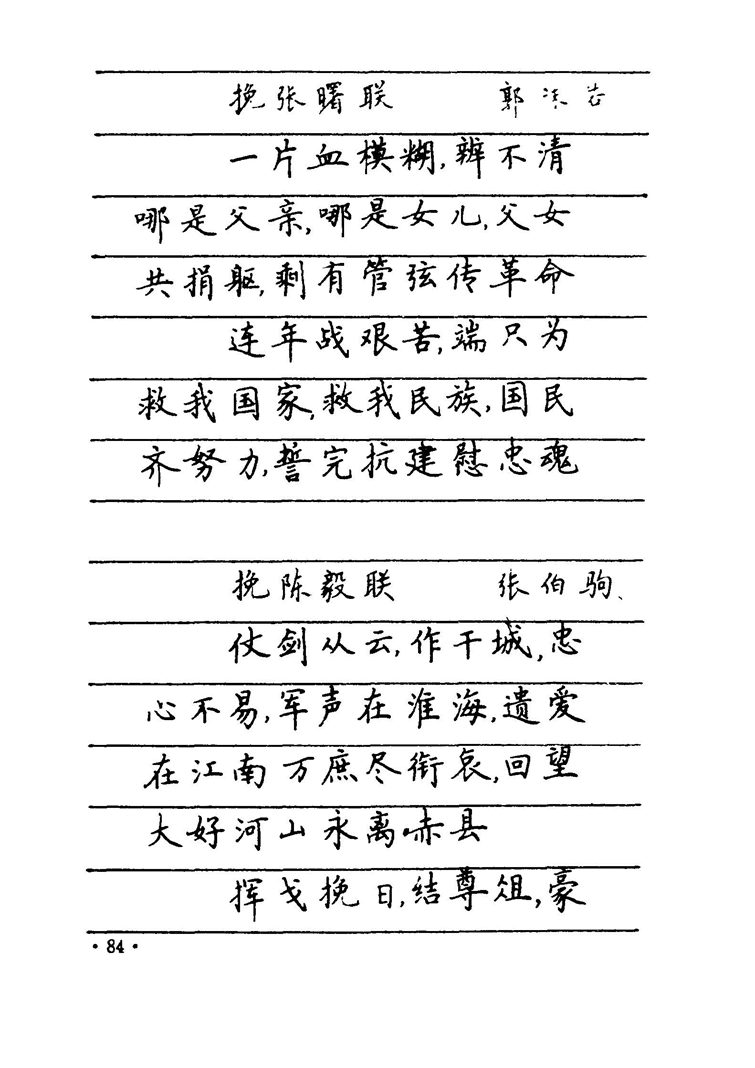 挽张曙联 郭沫若
一片血模糊,辨不清
哪是父亲,哪是女儿,父女
共捐躯,剩有管弦传革命
连年战艰苦,端只为
救我国家,救我民族,国民
齐努力,誓完抗建慰忠魂
挽陈毅联 张伯驹
仗剑从云,作干城,忠
心不易,军声在淮海,遗爱
在江南万庶尽衔哀,回望
大好河山永离赤县
挥戈挽日,结尊俎,豪
·84·